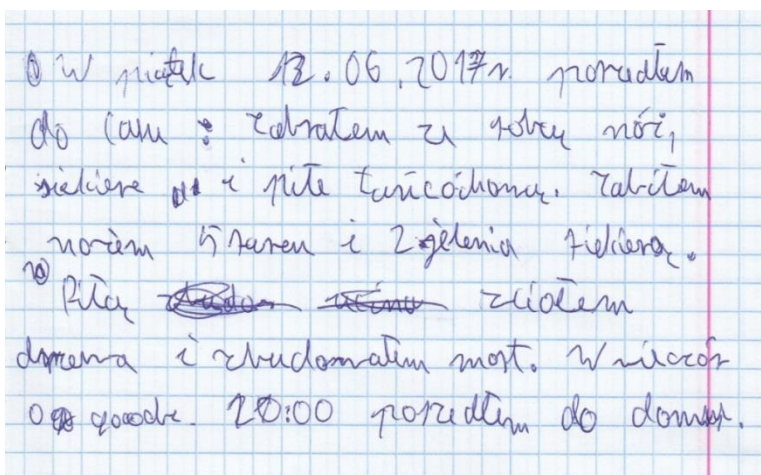 W piątek 12.06.2017r. poszedłem
do lasu i zabrałem ze sobą nóż,
siekiere i piłe łańcóchową. Zabiłem
nożem 5 saren i 2 jelenia siekierą.
Piłą zciołem
drzewa i zbudowałem most. W wieczór
o godz. 20:00 poszedłem do domu.